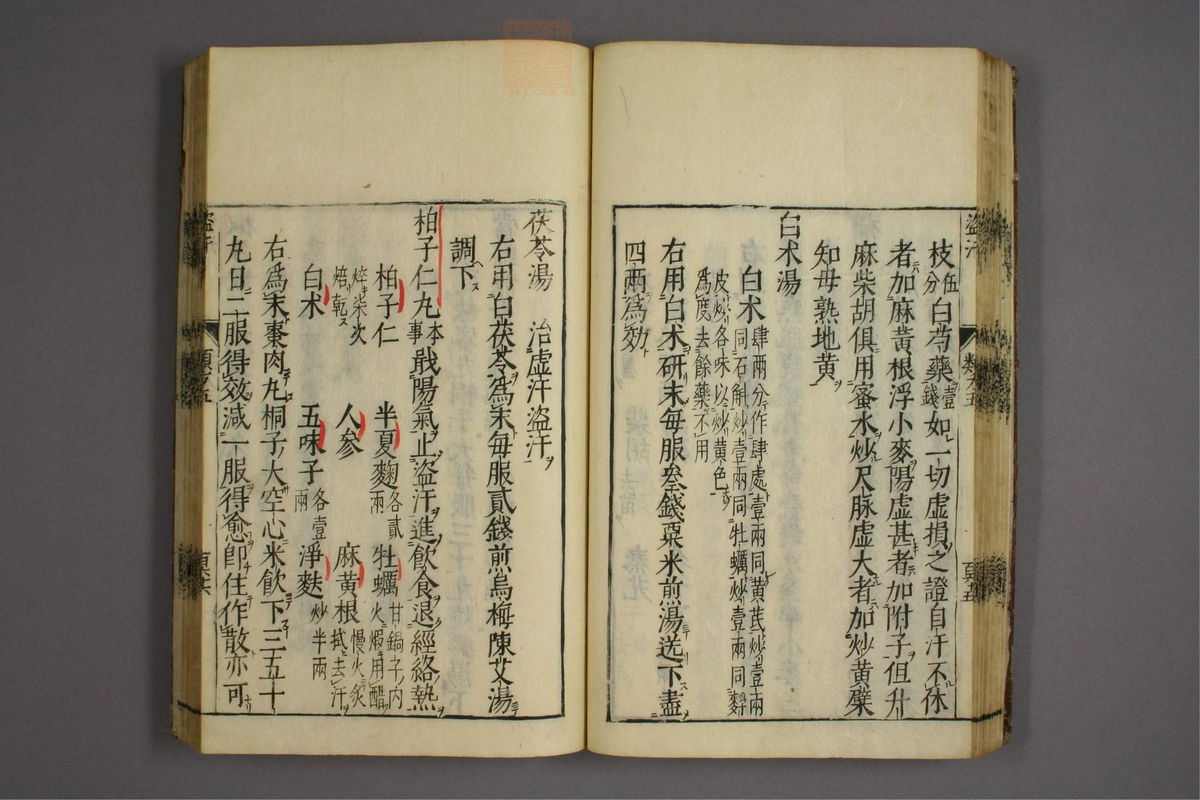 枝伍分白芍藥壹錢如一切虛損之證自汗不休
者加麻黃根浮小麥陽虛甚者加附子但升
麻柴胡俱用蜜水炒尺脉虛大者加炒黃檗
知母熟地黄
白术湯
白术肆兩分作肆處壹兩同黃芪炒壹兩
同石斛炒壹兩同牡蠣炒壹兩同麩
皮炒各味以炒黄色
爲度去餘藥不用
右用白术研末每服叄錢粟米煎湯送下盡
四兩爲効
盜汗
類分五
茯苓湯 治虛汗盜汗
右用白茯苓爲末每服貳錢煎烏梅陳艾湯
調下
柏子仁丸本事戢陽氣止盜汗進飲食退經絡熱
柏子仁 半夏麴各貳兩 牡蠣甘鍋子內火煆用醋
焠柒次焙乾 人參 麻黃根慢火炙拭去汗
白术 五味子各壹兩 淨麩炒半兩
右爲末棗肉丸桐子大空心米飲下三五十
丸日二服得效減一服得愈即住作散亦可
盜汗